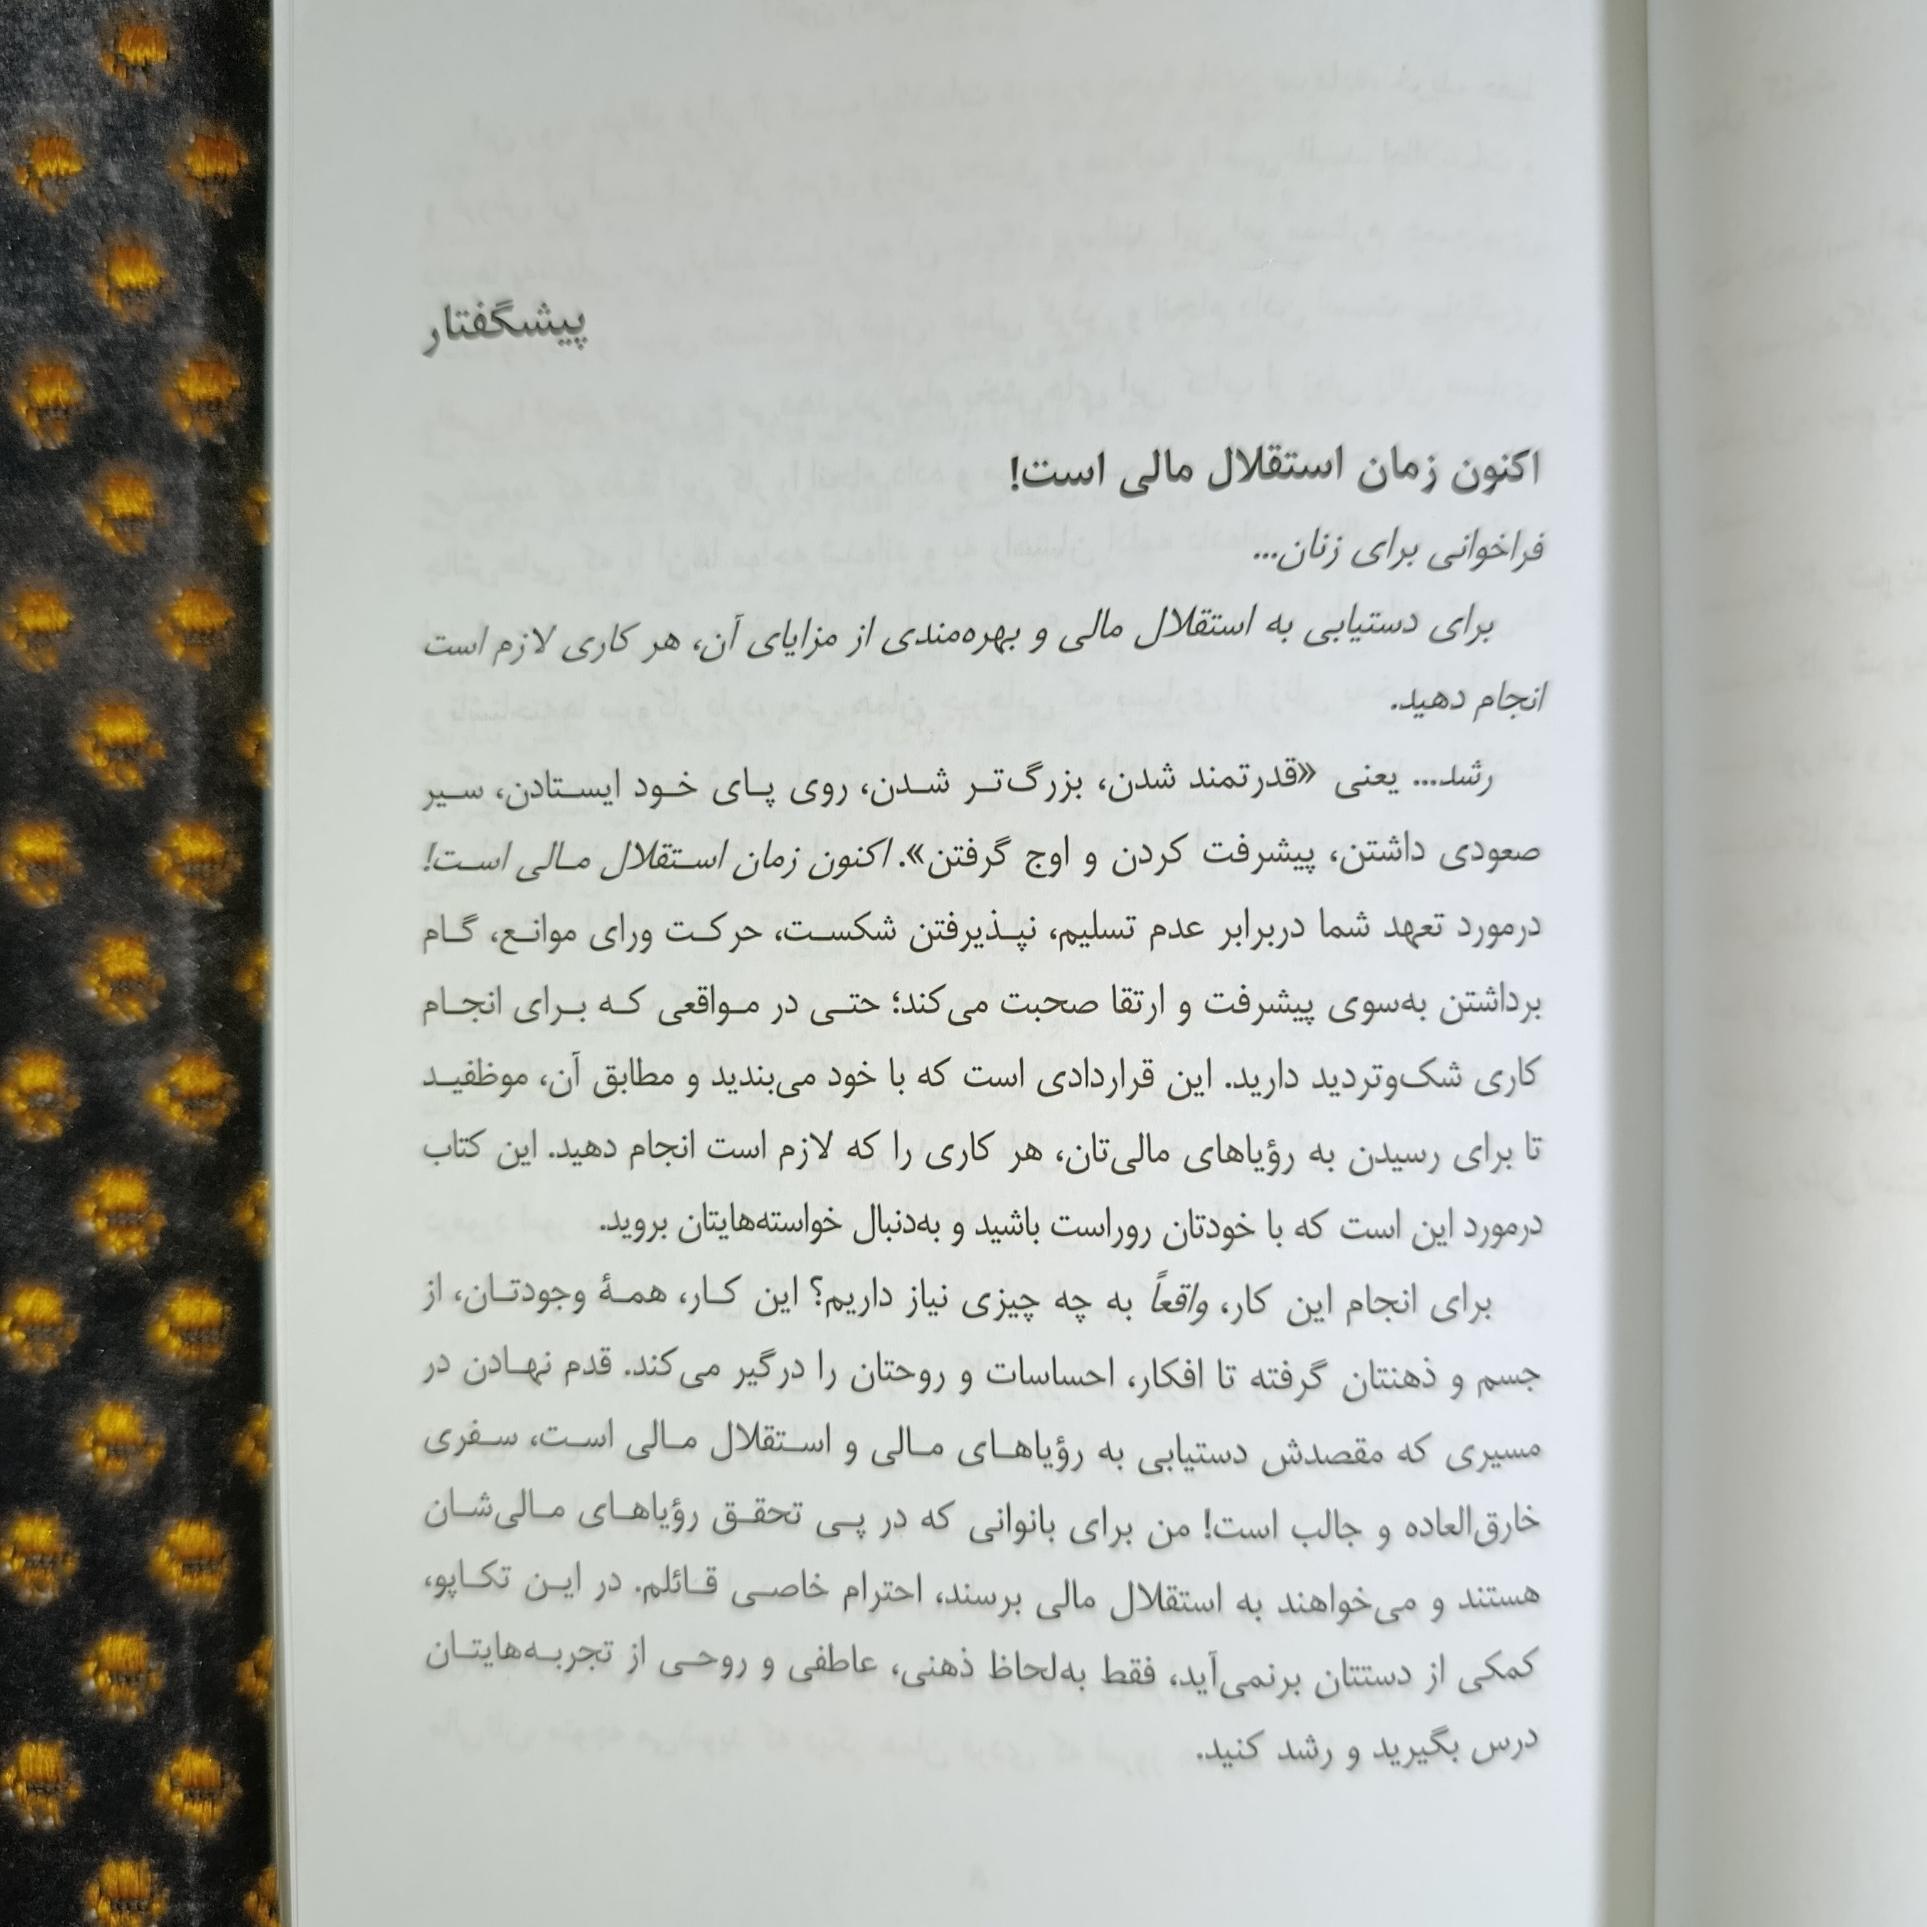 پیشگفتار
اکنون زمان استقلال مالی است!
فراخوانی برای زنان...
برای دستیابی به استقلال مالی و بهره‌مندی از مزایای آن، هر کاری لازم است
انجام دهید.
رشد... یعنی «قدرتمند شدن، بزرگ‌تر شدن، روی پای خود ایستادن، سیر
صعودی داشتن، پیشرفت کردن و اوج گرفتن». اکنون زمان استقلال مالی است!
درمورد تعهد شما دربرابر عدم تسلیم، نپذیرفتن شکست، حرکت ورای موانع، گام
برداشتن به‌سوی پیشرفت و ارتقا صحبت می‌کند؛ حتی در مواقعی که برای انجام
کاری شک‌وتردید دارید. این قراردادی است که با خود می‌بندید و مطابق آن، موظفید
تا برای رسیدن به رؤیاهای مالی‌تان، هر کاری را که لازم است انجام دهید. این کتاب
درمورد این است که با خودتان روراست باشید و به‌دنبال خواسته‌هایتان بروید.
برای انجام این کار، واقعاً به چه چیزی نیاز داریم؟ این کار، همهٔ وجودتان، از
جسم و ذهنتان گرفته تا افکار، احساسات و روحتان را درگیر می‌کند. قدم نهادن در
مسیری که مقصدش دستیابی به رؤیاهای مالی و استقلال مالی است، سفری
خارق‌العاده و جالب است! من برای بانوانی که در پی تحقق رؤیاهای مالی‌شان
هستند و می‌خواهند به استقلال مالی برسند، احترام خاصی قائلم. در این تکاپو،
کمکی از دستتان برنمی‌آید، فقط به‌لحاظ ذهنی، عاطفی و روحی از تجربه‌هایتان
درس بگیرید و رشد کنید.